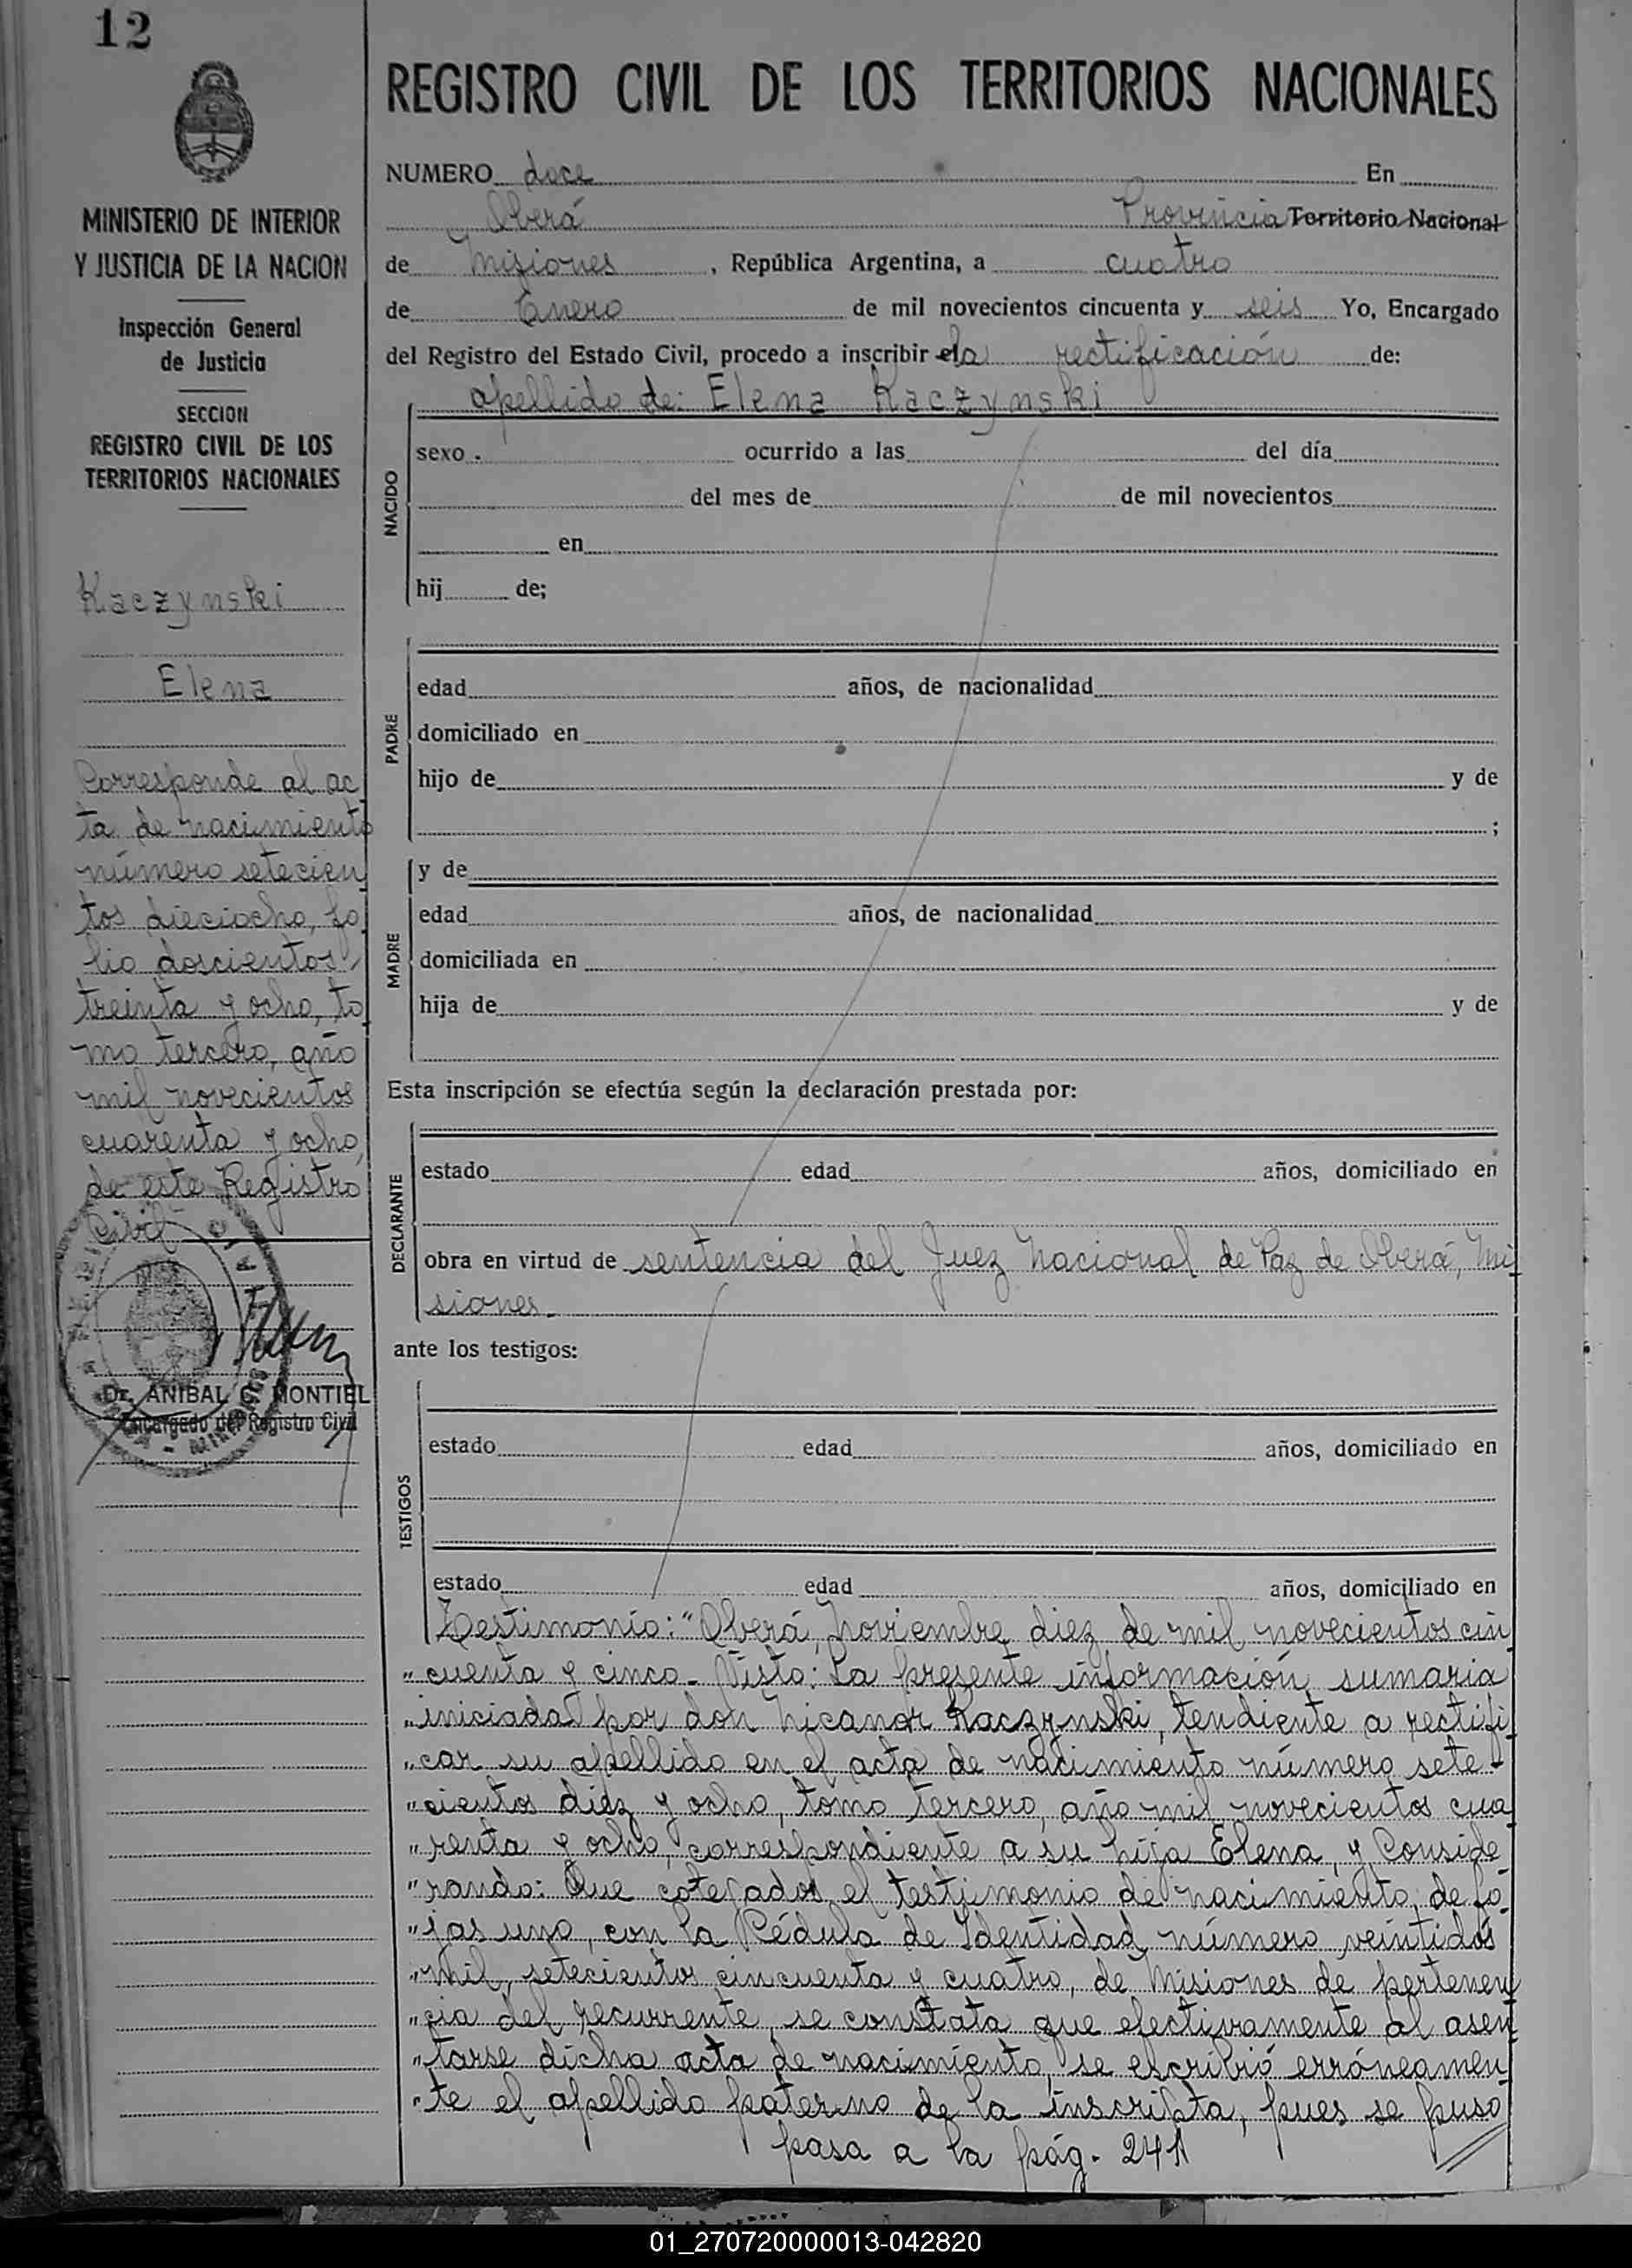 12
MINISTERIO DE INTERIOR
Y JUSTICIA DE LA NACION
Inspección General
de Justicia
SECCION
REGISTRO CIVIL DE LOS
TERRITORIOS NACIONALES
Kaczynski
Elena
Corresponde al ac
ta de nacimiento
número setecien
tos dieciocho, fo
lio doscientos
treinta y ocho, to
mo tercero, año
mil novecientos
cuarenta y ocho,
de este Registro
Civil
Dr. ANIBAL C. MONTIEL
Encargado del Registro Civil
REGISTRO CIVIL DE LOS TERRITORIOS NACIONALES
NUMERO doce En
Oberá Provincia Territorio Nacional
de Misiones, República Argentina, a cuatro
de Enero de mil novecientos cincuenta y seis Yo, Encargado
del Registro del Estado Civil, procedo a inscribir la rectificación de:
apellido de: Elena Kaczynski
NACIDO
sexo ocurrido a las del día
del mes de de mil novecientos
en
hij de;
PADRE
edad años, de nacionalidad
domiciliado en
hijo de y de
;
MADRE
y de
edad años, de nacionalidad
domiciliada en
hija de y de
Esta inscripción se efectúa según la declaración prestada por:
DECLARANTE
estado edad años, domiciliado en
obra en virtud de sentencia del Juez Nacional de Paz de Oberá, Mi
siones.
ante los testigos:
TESTIGOS
estado edad años, domiciliado en
estado edad años, domiciliado en
Testimonio: "Oberá, Noviembre diez de mil novecientos cin
"cuenta y cinco. Visto: La presente información sumaria
"iniciada por don Nicanor Kaczynski, tendiente a rectifi
"car su apellido en el acta de nacimiento número sete-
"cientos diez y ocho, tomo tercero, año mil novecientos cua
"renta y ocho, correspondiente a su hija Elena, y Conside
"rando: Que cotejados el testimonio de nacimiento, de fo-
"jas uno, con la Cédula de Identidad número veintidós
"mil, setecientos cincuenta y cuatro, de Misiones de pertenen
"cia del recurrente, se constata que efectivamente al asen
"tarse dicha acta de nacimiento, se escribió erróneamen
"te el apellido paterno de la inscripta, pues se puso
pasa a la pág. 241
01_270720000013-042820